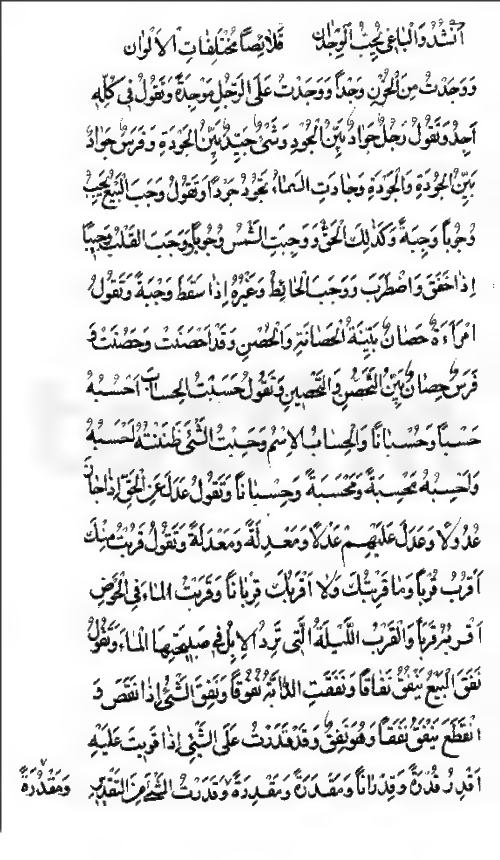 أَنْشُدُ وَالْبَاغِي يُحِبُّ الْوِجْدَان قَلَائِصًا مُخْتَلِفَاتِ الْأَلْوَان
وَوَجَدْتُ مِنَ الْحُزْنِ وَجْدًا وَوَجَدْتُ عَلَى الرَّجُلِ مَوْجِدَةً وَتَقُولُ فِي كُلِّهِ
أَجِدُ وَتَقُولُ رَجُلٌ جَوَادٌ بَيِّنُ الْجُودِ وَشَيْءٌ جَيِّدٌ بَيِّنُ الْجَوْدَةِ وَفَرَسٌ جَوَادٌ
بَيِّنُ الْجُودَةِ وَالْجَوْدَةِ وَجَادَتِ السَّمَاءُ تَجُودُ جَوْدًا وَتَقُولُ وَجَبَ الْبَيْعُ يَجِبُ
وُجُوبًا وَجِبَةً وَكَذٰلِكَ الْحَقُّ وَوَجَبَتِ الشَّمْسُ وُجُوبًا وَوَجَبَ الْقَلْبُ وَجِيبًا
إِذَا خَفَقَ وَاضْطَرَبَ وَوَجَبَ الْحَائِطُ وَغَيْرُهُ إِذَا سَقَطَ وَجْبَةً وَتَقُولُ
امْرَأَةٌ حَصَانٌ بَيِّنَةُ الْحَصَانَةِ وَالْحُصْنِ وَقَدْ أَحْصَنَتْ وَحَصُنَتْ وَ
فَرَسٌ حِصَانٌ بَيِّنُ التَّحَصُّنِ وَالتَّحْصِينِ وَتَقُولُ حَسَبْتُ الْحِسَابَ أَحْسُبُهُ
حَسْبًا وَحُسْبَانًا وَالْحِسَابُ الْاِسْمُ وَحَسِبْتُ الشَّيْءَ ظَنَنْتُهُ أَحْسَبُهُ
وَأَحْسِبُهُ مَحْسِبَةً وَمَحْسَبَةً وَحِسْبَانًا وَتَقُولُ عَدَلَ عَنِ الْحَقِّ إِذَا جَارَ
عُدُولًا وَعَدَلَ عَلَيْهِمْ عَدْلًا وَمَعْدِلَةً وَمَعْدَلَةً وَتَقُولُ قَرُبْتُ مِنْكَ
أَقْرُبُ قُرْبًا وَمَا قَرِبْتُكَ وَلَا أَقْرَبُكَ قِرْبَانًا وَقَرَبْتُ الْمَاءَ فِي الْحَوْضِ
وَالْقَرَبُ اللَّيْلَةُ الَّتِي تَرِدُ الْإِبِلُ فِي صَبِيحَتِهَا الْمَاءَ وَتَقُولُ
نَفَقَ الْبَيْعُ يَنْفُقُ نَفَاقًا وَنَفَقَتِ الدَّابَّةُ نُفُوقًا وَنَفِقَ الشَّيْءُ إِذَا نَقَصَ وَ
انْقَطَعَ يَنْفَقُ نَفَقًا وَهُوَ نَفِقٌ وَقَدْ قَدَرْتُ عَلَى الشَّيْءِ إِذَا قَوِيتَ عَلَيْهِ
أَقْدِرُ قُدْرَةً وَقِدْرَانًا وَمَقْدَرَةً وَمَقْدِرَةً وَقَدَرْتُ الشَّيْءَ مِنَ التَّقْدِيرِ وَمَقْدُرَةً